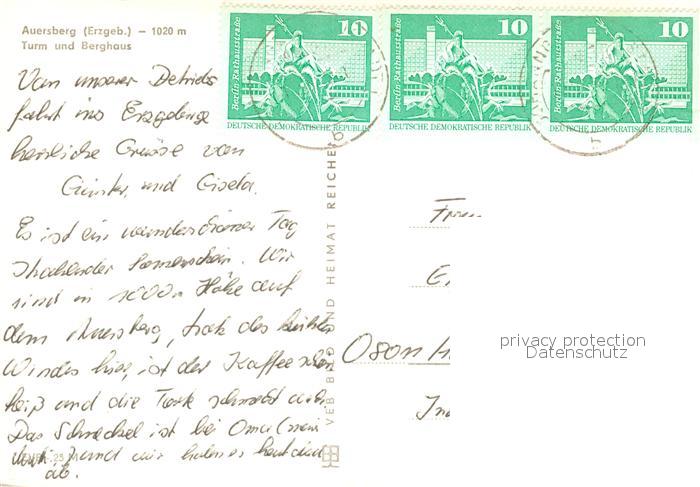 Auersberg (Erzgeb.) – 1020 m
Turm und Berghaus
10
10
10
Berlin · Rathausstraße
Berlin · Rathausstraße
Berlin · Rathausstraße
DEUTSCHE DEMOKRATISCHE REPUBLIK
DEUTSCHE DEMOKRATISCHE REPUBLIK
DEUTSCHE DEMOKRATISCHE REPUBLIK
Von unserer Betriebs
fahrt ins Erzgebirge
herzliche Grüße von
Günter und Gisela.
Es ist ein wunderschöner Tag
strahlender Sonnenschein. Wir
sind in 1000m Höhe auf
dem Auersberg, trotz des
Windes hier, ist der Kaffee schön
heiß und die Torte schmeckt auch.
Das Schnecksel ist bei Oma (mein
und wir holen es heut dann
ab.
VEB BILD UND HEIMAT REICHENB
Frau
privacy protection
Datenschutz